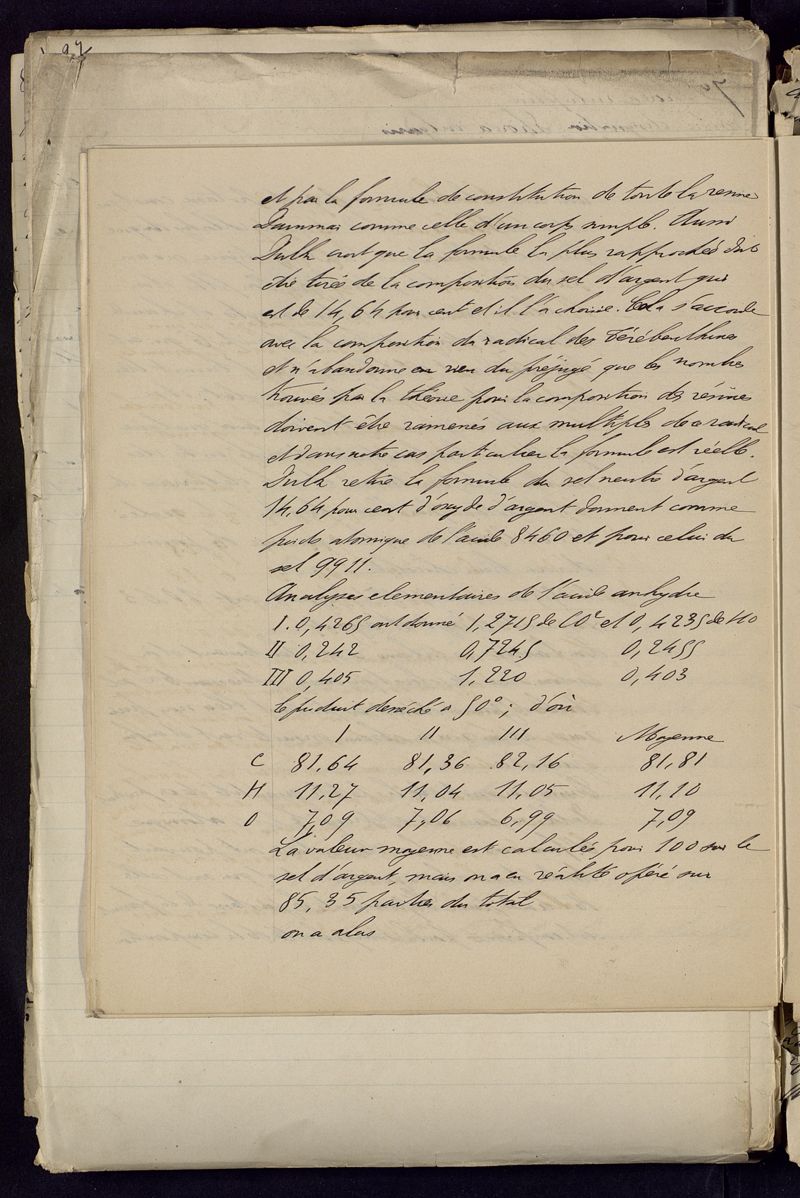 97
et par la formule de constitution de toute la resine
Dammar comme celle d'un corps simple. Aussi
Dulk croit que la formule la plus rapprochée doit
être tirée de la composition du sel d'argent qui
est de 14,64 pour cent et il l'a choisie. Cela s'accorde
avec la composition du radical des Térébenthines
et n'abandonne en rien du préjugé que les nombres
trouvés par la théorie pour la composition des résines
doivent être ramenés aux multiples de ce radical
et dans notre cas particulier la formule est réelle.
Dulk retire la formule du sel neutre d'argent
14,64 pour cent d'oxyde d'argent donnent comme
poids atomique de l'acide 8460 et pour celui du
sel 9911.
Analyses elementaires de l'acide anhydre
I. 0,4265 ont donné 1,2715 de CO² et 0,4235 de HO
II 0,242 0,7245 0,2455
III 0,405 1,220 0,403
le produit desséché a 50°; d'où
I II III Moyenne
C 81,64 81,36 82,16 81,81
H 11,27 11,04 11,05 11,10
O 7,09 7,06 6,99 7,09
La valeur moyenne est calculée pour 100 sur le
sel d'argent, mais on a en réalité opéré sur
85,35 parties du total
on a alas